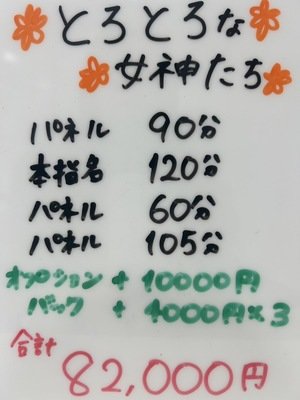 とろとろな
女神たち
パネル 90分
本指名 120分
パネル 60分
パネル 105分
オプション + 10000円
バック + 4000円×3
合計
82,000円